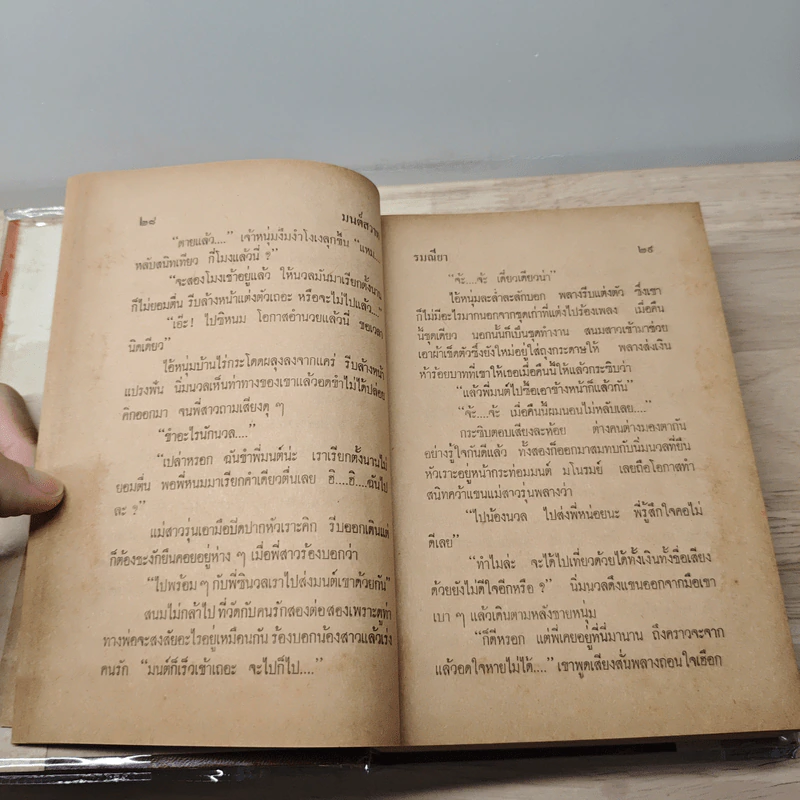 ๒๘
มนต์สวาท
“ตายแล้ว....” เจ้าหนุ่มงึมงำโงเงลุกขึ้น “แหม....
หลับสนิทเทียว กี่โมงแล้วนี่ ?”
“จะสองโมงเช้าอยู่แล้ว ให้นวลมันมาเรียกตั้งนาน
ก็ไม่ยอมตื่น รีบล้างหน้าแต่งตัวเถอะ หรือจะไม่ไปแล้ว....”
“เอ๊ะ! ไปซิหนม โอกาสอำนวยแล้วนี่ ขอเวลา
นิดเดียว”
ไอ้หนุ่มบ้านไร่กระโดดผลุงลงจากแคร่ รีบล้างหน้า
แปรงฟัน นิ่มนวลเห็นท่าทางของเขาแล้วอดขำไม่ได้ปล่อย
คิกออกมา จนพี่สาวถามเสียงดุ ๆ
“ขำอะไรนักนวล....”
“เปล่าหรอก ฉันขำพี่มนต์น่ะ เราเรียกตั้งนานไม่
ยอมตื่น พอพี่หนมมาเรียกคำเดียวตื่นเลย ฮิ....ฮิ....ฉันไป
ละ ?”
แม่สาวรุ่นเอามือปิดปากหัวเราะคิก รีบออกเดินแต่
ก็ต้องชะงักยืนคอยอยู่ห่าง ๆ เมื่อพี่สาวร้องบอกว่า
“ไปพร้อม ๆ กับพี่ซินวลเราไปส่งมนต์เขาด้วยกัน”
สนมไม่กล้าไป ที่วัดกับคนรักสองต่อสองเพราะดูท่า
ทางพ่อจะสงสัยอะไรอยู่เหมือนกัน ร้องบอกน้องสาวแล้วเร่ง
คนรัก “มนต์ก็เร็วเข้าเถอะ จะไปก็ไป....”
รมณียา
๒๙
“จ้ะ....จ้ะ เดี๋ยวเดียวน่า”
ไอ้หนุ่มละล่ำละลักบอก พลางรีบแต่งตัว ซึ่งเขา
ก็ไม่มีอะไรมากนอกจากชุดเก่าที่แต่งไปร้องเพลง เมื่อคืน
นี้ชุดเดียว นอกนั้นก็เป็นชุดทำงาน สนมสาวเข้ามาช่วย
เอาผ้าเช็ดตัวซึ่งยังใหม่อยู่ใส่ถุงกระดาษให้ พลางส่งเงิน
ห้าร้อยบาทที่เขาให้เธอเมื่อคืนนี้ให้แล้วกระซิบว่า
“แล้วพี่มนต์ไปซื้อเอาข้างหน้าก็แล้วกัน”
“จ้ะ....จ้ะ เมื่อคืนนี้ผมนอนไม่หลับเลย....”
กระซิบตอบเสียงละห้อย ต่างคนต่างมองตากัน
อย่างรู้ใจกันดีแล้ว ทั้งสองก็ออกมาสมทบกับนิ่มนวลที่ยืน
หัวเราะอยู่หน้ากระท่อมมนต์ มโนรมย์ เลยถือโอกาสทำ
สนิทคว้าแขนแม่สาวรุ่นพลางว่า
“ไปน้องนวล ไปส่งพี่หน่อยนะ พี่รู้สึกใจคอไม่
ดีเลย”
“ทำไมล่ะ จะได้ไปเที่ยวด้วยได้ทั้งเงินทั้งชื่อเสียง
ด้วยยังไม่ดีใจอีกหรือ ?” นิ่มนวลดึงแขนออกจากมือเขา
เบา ๆ แล้วเดินตามหลังชายหนุ่ม
“ก็ดีหรอก แต่พี่เคยอยู่ที่นี่มานาน ถึงคราวจะจาก
แล้วอดใจหายไม่ได้....” เขาพูดเสียงสั่นพลางถอนใจเฮือก